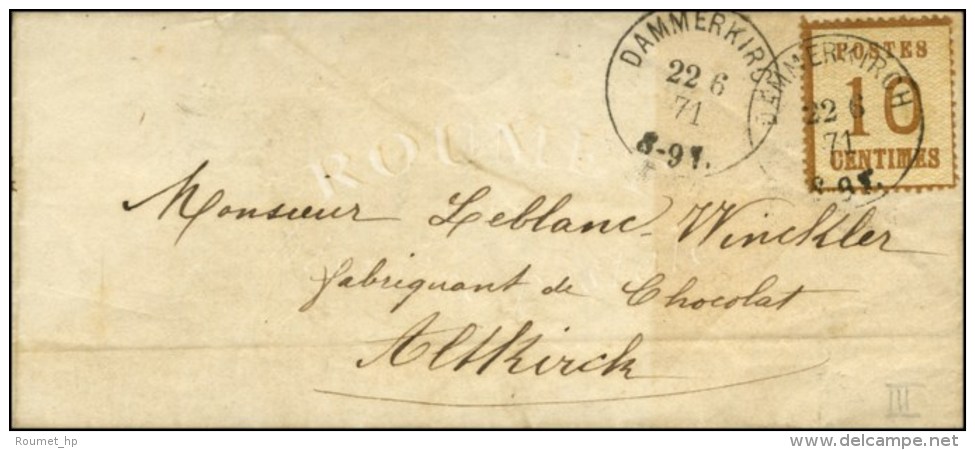 DAMMERKIRCH
22 6
71
8-9 V.
DAMMERKIRCH
22 6
71
8-9 V.
POSTES
10
CENTIMES
ROUMET
Monsieur Leblanc-Winckler
fabriquant de Chocolat
Altkirck
III
Roumet_hp
delcampe.net